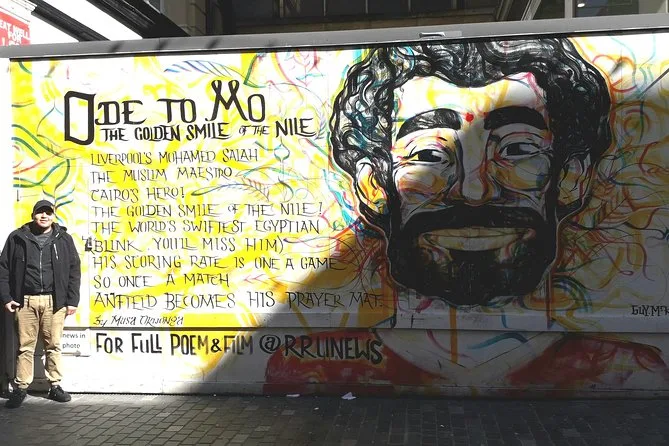 ODE TO MO
THE GOLDEN SMILE OF THE NILE
LIVERPOOL'S MOHAMED SALAH
THE MUSLIM MAESTRO
CAIRO'S HERO!
THE GOLDEN SMILE OF THE NILE!
THE WORLD'S SWIFTEST EGYPTIAN
(BLINK, YOU'LL MISS HIM)
HIS SCORING RATE IS ONE A GAME
SO ONCE A MATCH
ANFIELD BECOMES HIS PRAYER MAT.
By MUSA OKWONGA
FOR FULL POEM & FILM @RRUNEWS
news in
photo